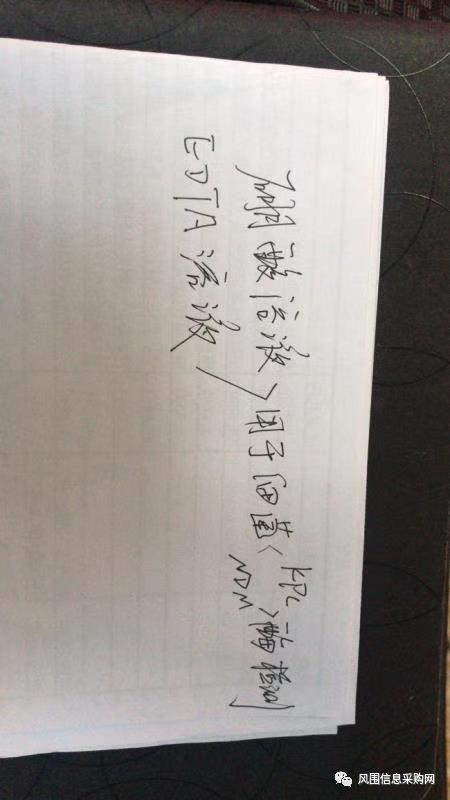 硼酸溶液
EDTA溶液
>用于细菌<
KPC
NDM
>酶检测
风围信息采购网